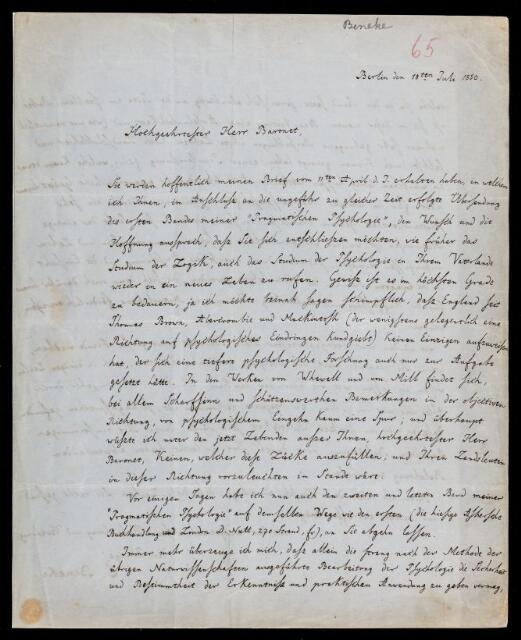 Beneke
65
Berlin den 18ten Juli 1850.
Hochgeehrtester Herr Baronet,
Sie werden hoffentlich meinen Brief vom 11ten April d. J. erhalten haben, in welchem
ich Ihnen, in Anschluß an die ungefähr zu gleicher Zeit erfolgte Übersendung
des ersten Bandes meiner "Pragmatischen Psychologie", den Wunsch und die
Hoffnung aussprach, daß Sie sich entschließen möchten, wie früher das
Studium der Logik, auch das Studium der Psychologie in Ihrem Vaterlande
wieder in ein neues Leben zu rufen. Gewiß ist es im höchsten Grade
zu bedauern, ja ich möchte beinah sagen schimpflich, daß England seit
Thomas Brown, Abercrombie und Mackintosh (der wenigstens gelegentlich eine
Richtung auf psychologisches Eindringen kundgiebt) keinen Einzigen aufzuweisen
hat, der sich eine tiefere psychologische Forschung auch nur zur Aufgabe
gesetzt hätte. In den Werken von Whewell und von Mill findet sich,
bei allem Scharfsinn und schätzenswerthen Bemerkungen in der objectiven
Richtung, von psychologischem Eingehn kaum eine Spur; und überhaupt
wüßte ich unter den jetzt Lebenden außer Ihnen, hochgeehrtester Herr
Baronet, Keinen, welcher diese Lücke auszufüllen, und Ihren Landsleuten
in dieser Richtung vorzuleuchten im Stande wäre.
Vor einigen Tagen habe ich nun auch den zweiten und letzten Band meiner
"Pragmatischen Psychologie" auf demselben Wege wie den ersten (die hiesige Asher'sche
Buchhandlung und London D. Nutt, 270 Strand, ), an Sie abgehn lassen.
Immer mehr überzeuge ich mich, daß allein die streng nach der Methode der
übrigen Naturwissenschaften ausgeführte Bearbeitung der Psychologie die Sicherheit
und Bestimmtheit der Erkenntniß und praktischen Anwendung zu geben vermag,